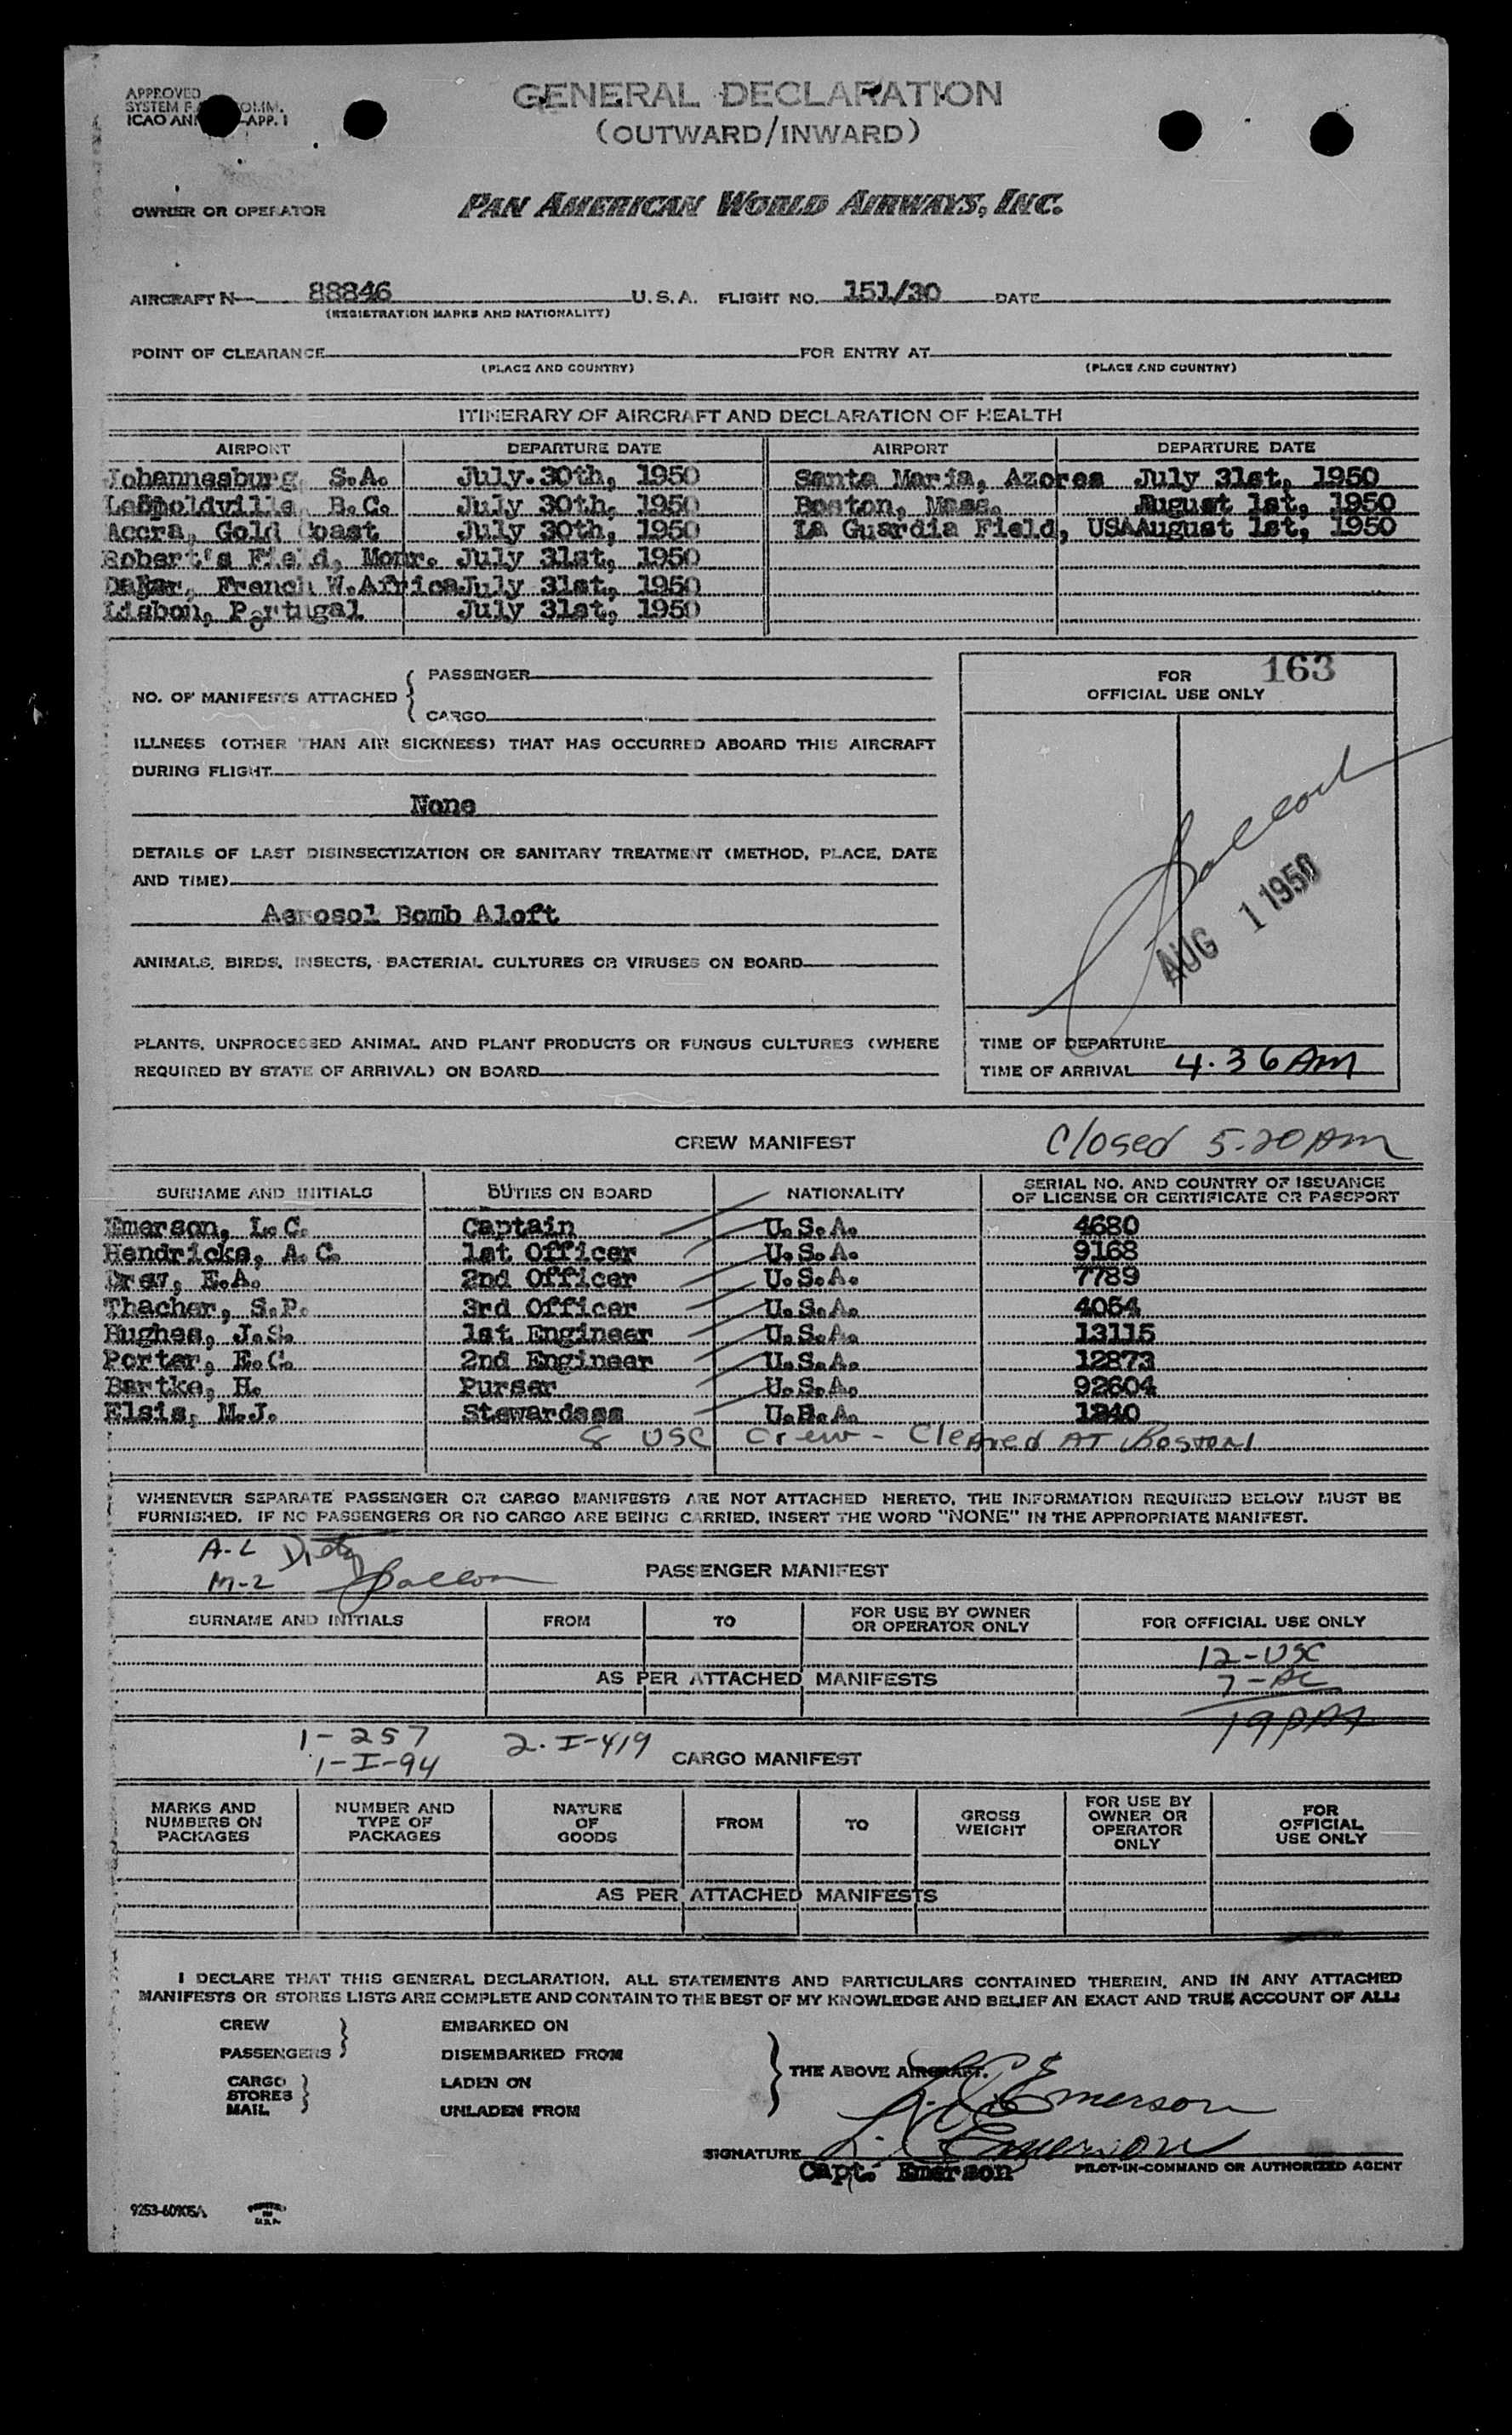 APPROVED
SYSTEM F OMM.
ICAO ANN -APP. 1
GENERAL DECLARATION
(OUTWARD/INWARD)
OWNER OR OPERATOR PAN AMERICAN WORLD AIRWAYS, INC.
AIRCRAFT N- 88846 U.S.A. FLIGHT NO. 151/30 DATE
(REGISTRATION MARKS AND NATIONALITY)
POINT OF CLEARANCE FOR ENTRY AT
(PLACE AND COUNTRY) (PLACE AND COUNTRY)
ITINERARY OF AIRCRAFT AND DECLARATION OF HEALTH
AIRPORT DEPARTURE DATE AIRPORT DEPARTURE DATE
Johannesburg, S.A. July 30th, 1950 Santa Maria, Azores July 31st, 1950
Leopoldville, B.C. July 30th, 1950 Boston, Mass. August 1st, 1950
Accra, Gold Coast July 30th, 1950 LA Guardia Field, USA August 1st, 1950
Robert's Field, Monr. July 31st, 1950
Dakar, French W.Africa July 31st, 1950
Lisbon, Portugal July 31st, 1950
NO. OF MANIFESTS ATTACHED { PASSENGER
CARGO
FOR 163
OFFICIAL USE ONLY
ILLNESS (OTHER THAN AIR SICKNESS) THAT HAS OCCURRED ABOARD THIS AIRCRAFT
DURING FLIGHT
None
DETAILS OF LAST DISINSECTIZATION OR SANITARY TREATMENT (METHOD, PLACE, DATE
AND TIME)
Aerosol Bomb Aloft
AUG 1 1950
ANIMALS, BIRDS, INSECTS, BACTERIAL CULTURES OR VIRUSES ON BOARD
PLANTS, UNPROCESSED ANIMAL AND PLANT PRODUCTS OR FUNGUS CULTURES (WHERE
REQUIRED BY STATE OF ARRIVAL) ON BOARD
TIME OF DEPARTURE
TIME OF ARRIVAL 4.36 AM
CREW MANIFEST Closed 5.20 AM
SURNAME AND INITIALS DUTIES ON BOARD NATIONALITY SERIAL NO. AND COUNTRY OF ISSUANCE
OF LICENSE OR CERTIFICATE OR PASSPORT
Emerson, L.C. Captain U.S.A. 4680
Hendricks, A.C. 1st Officer U.S.A. 9168
Drew, E.A. 2nd Officer U.S.A. 7789
Thacher, S.P. 3rd Officer U.S.A. 4054
Hughes, J.S. 1st Engineer U.S.A. 13115
Porter, E.C. 2nd Engineer U.S.A. 12873
Bartke, H. Purser U.S.A. 92604
Elsis, M.J. Stewardess U.S.A. 1240
8 USC Crew - Cleared AT Boston
WHENEVER SEPARATE PASSENGER OR CARGO MANIFESTS ARE NOT ATTACHED HERETO, THE INFORMATION REQUIRED BELOW MUST BE
FURNISHED. IF NO PASSENGERS OR NO CARGO ARE BEING CARRIED, INSERT THE WORD "NONE" IN THE APPROPRIATE MANIFEST.
A-L
M-2
PASSENGER MANIFEST
SURNAME AND INITIALS FROM TO FOR USE BY OWNER
OR OPERATOR ONLY FOR OFFICIAL USE ONLY
12-USC
AS PER ATTACHED MANIFESTS 7-AL
19 PAX
1-257 2.I-419
1-I-94
CARGO MANIFEST
MARKS AND
NUMBERS ON
PACKAGES
NUMBER AND
TYPE OF
PACKAGES
NATURE
OF
GOODS
FROM
TO
GROSS
WEIGHT
FOR USE BY
OWNER OR
OPERATOR
ONLY
FOR
OFFICIAL
USE ONLY
AS PER ATTACHED MANIFESTS
I DECLARE THAT THIS GENERAL DECLARATION, ALL STATEMENTS AND PARTICULARS CONTAINED THEREIN, AND IN ANY ATTACHED
MANIFESTS OR STORES LISTS ARE COMPLETE AND CONTAIN TO THE BEST OF MY KNOWLEDGE AND BELIEF AN EXACT AND TRUE ACCOUNT OF ALL:
CREW EMBARKED ON
PASSENGERS DISEMBARKED FROM
CARGO LADEN ON
STORES
MAIL UNLADEN FROM
THE ABOVE AIRCRAFT.
L.C. Emerson
SIGNATURE L. C. Emerson
Capt. Emerson PILOT-IN-COMMAND OR AUTHORIZED AGENT
9253-60905A PRINTED
IN
U.S.A.